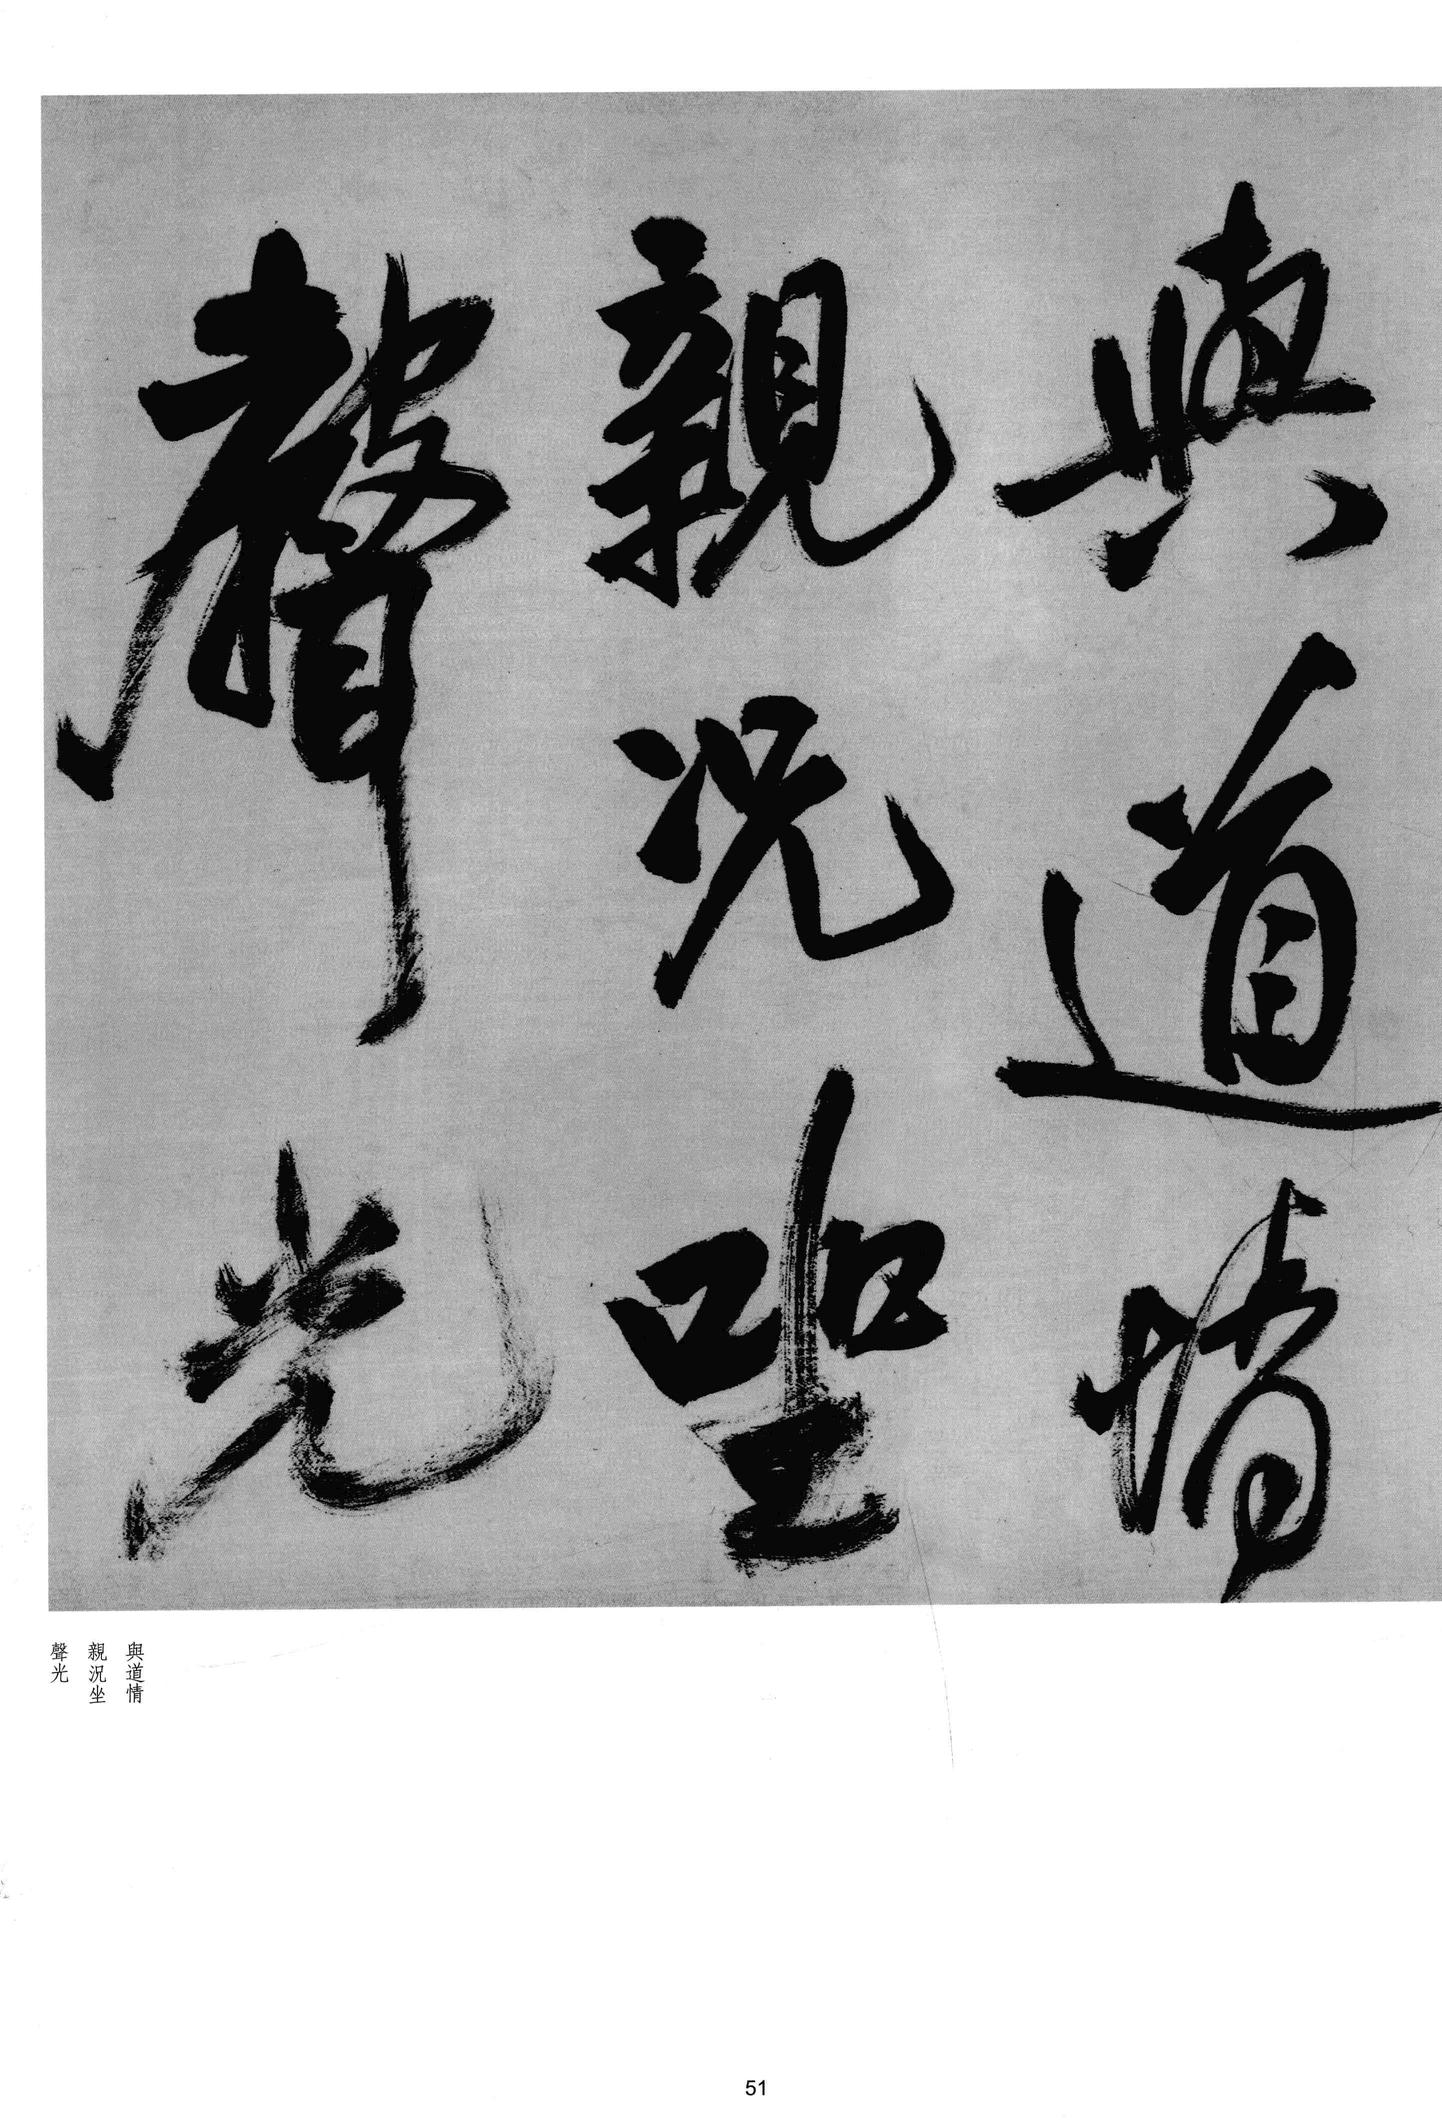 與道情
親況坐
聲光
與道情
親況坐
聲光
51